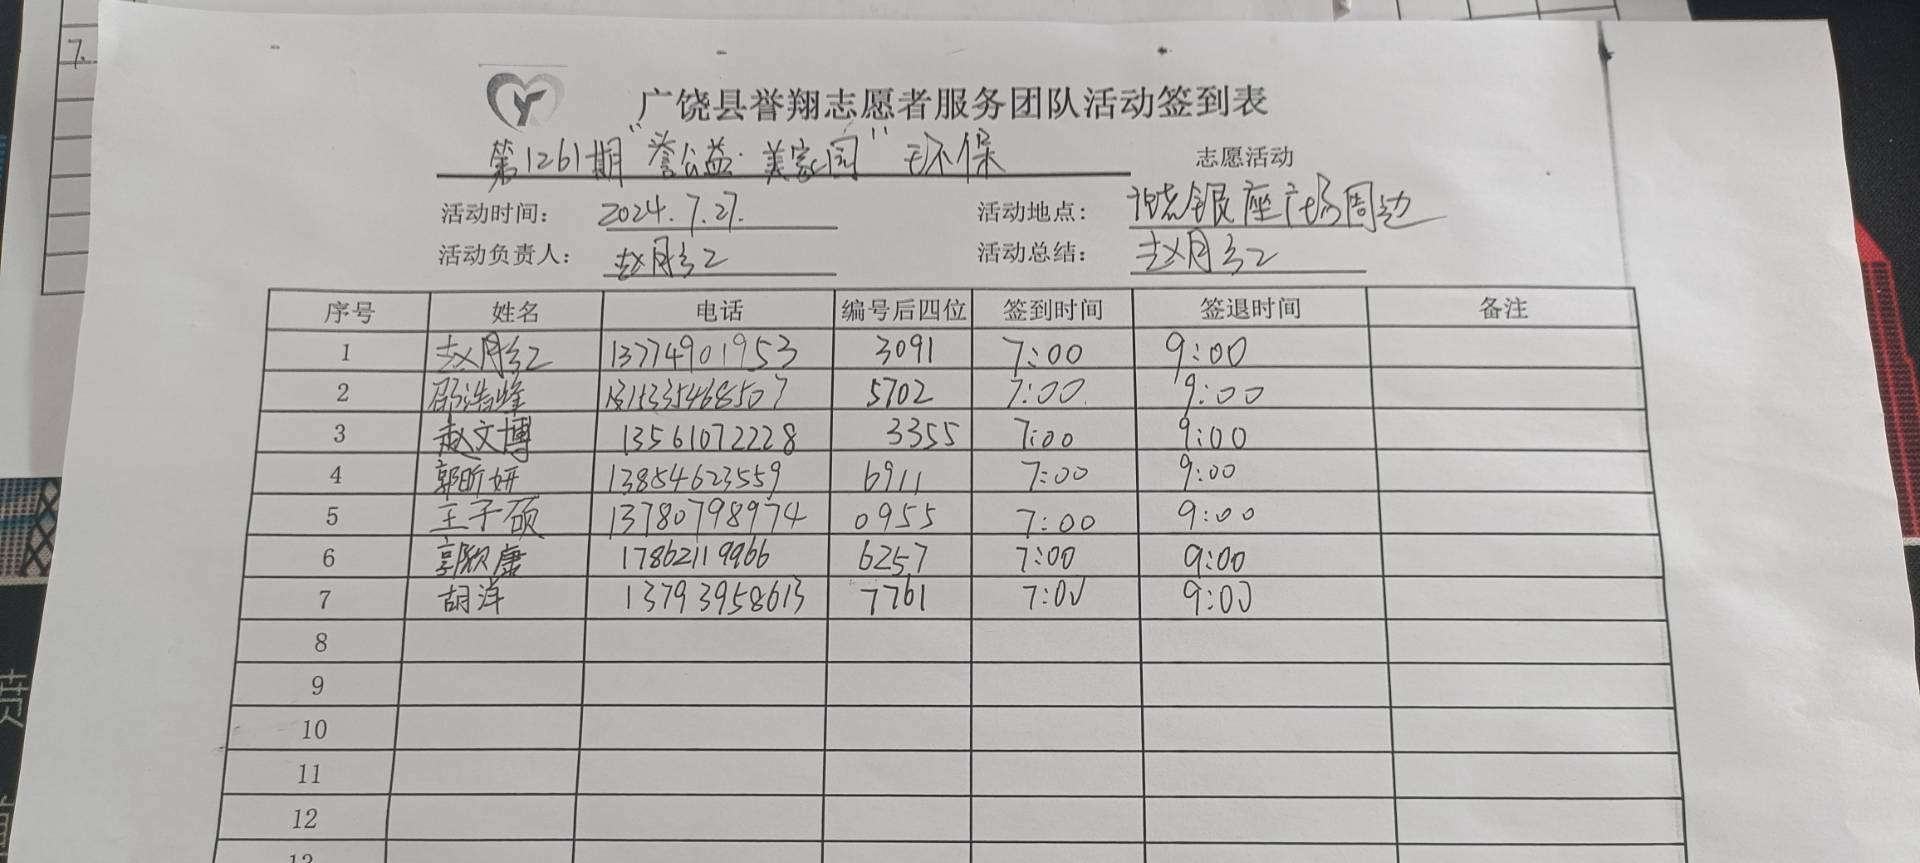 7.
广饶县誉翔志愿者服务团队活动签到表
第1261期“誉公益·美家园”环保 志愿活动
活动时间： 2024.7.27. 活动地点： 银座广场周边
活动负责人： 赵月红 活动总结： 赵月红
序号 姓名 电话 编号后四位 签到时间 签退时间 备注
1 赵月红 13774901953 3091 7:00 9:00
2 邵浩峰 5702 7:00 9:00
3 赵文博 13561072228 3355 7:00 9:00
4 郭昕妍 13854623559 6911 7:00 9:00
5 王子硕 13780798974 0955 7:00 9:00
6 郭欣康 17862119966 6257 7:00 9:00
7 胡洋 13793958613 7761 7:00 9:00
8
9
10
11
12
13